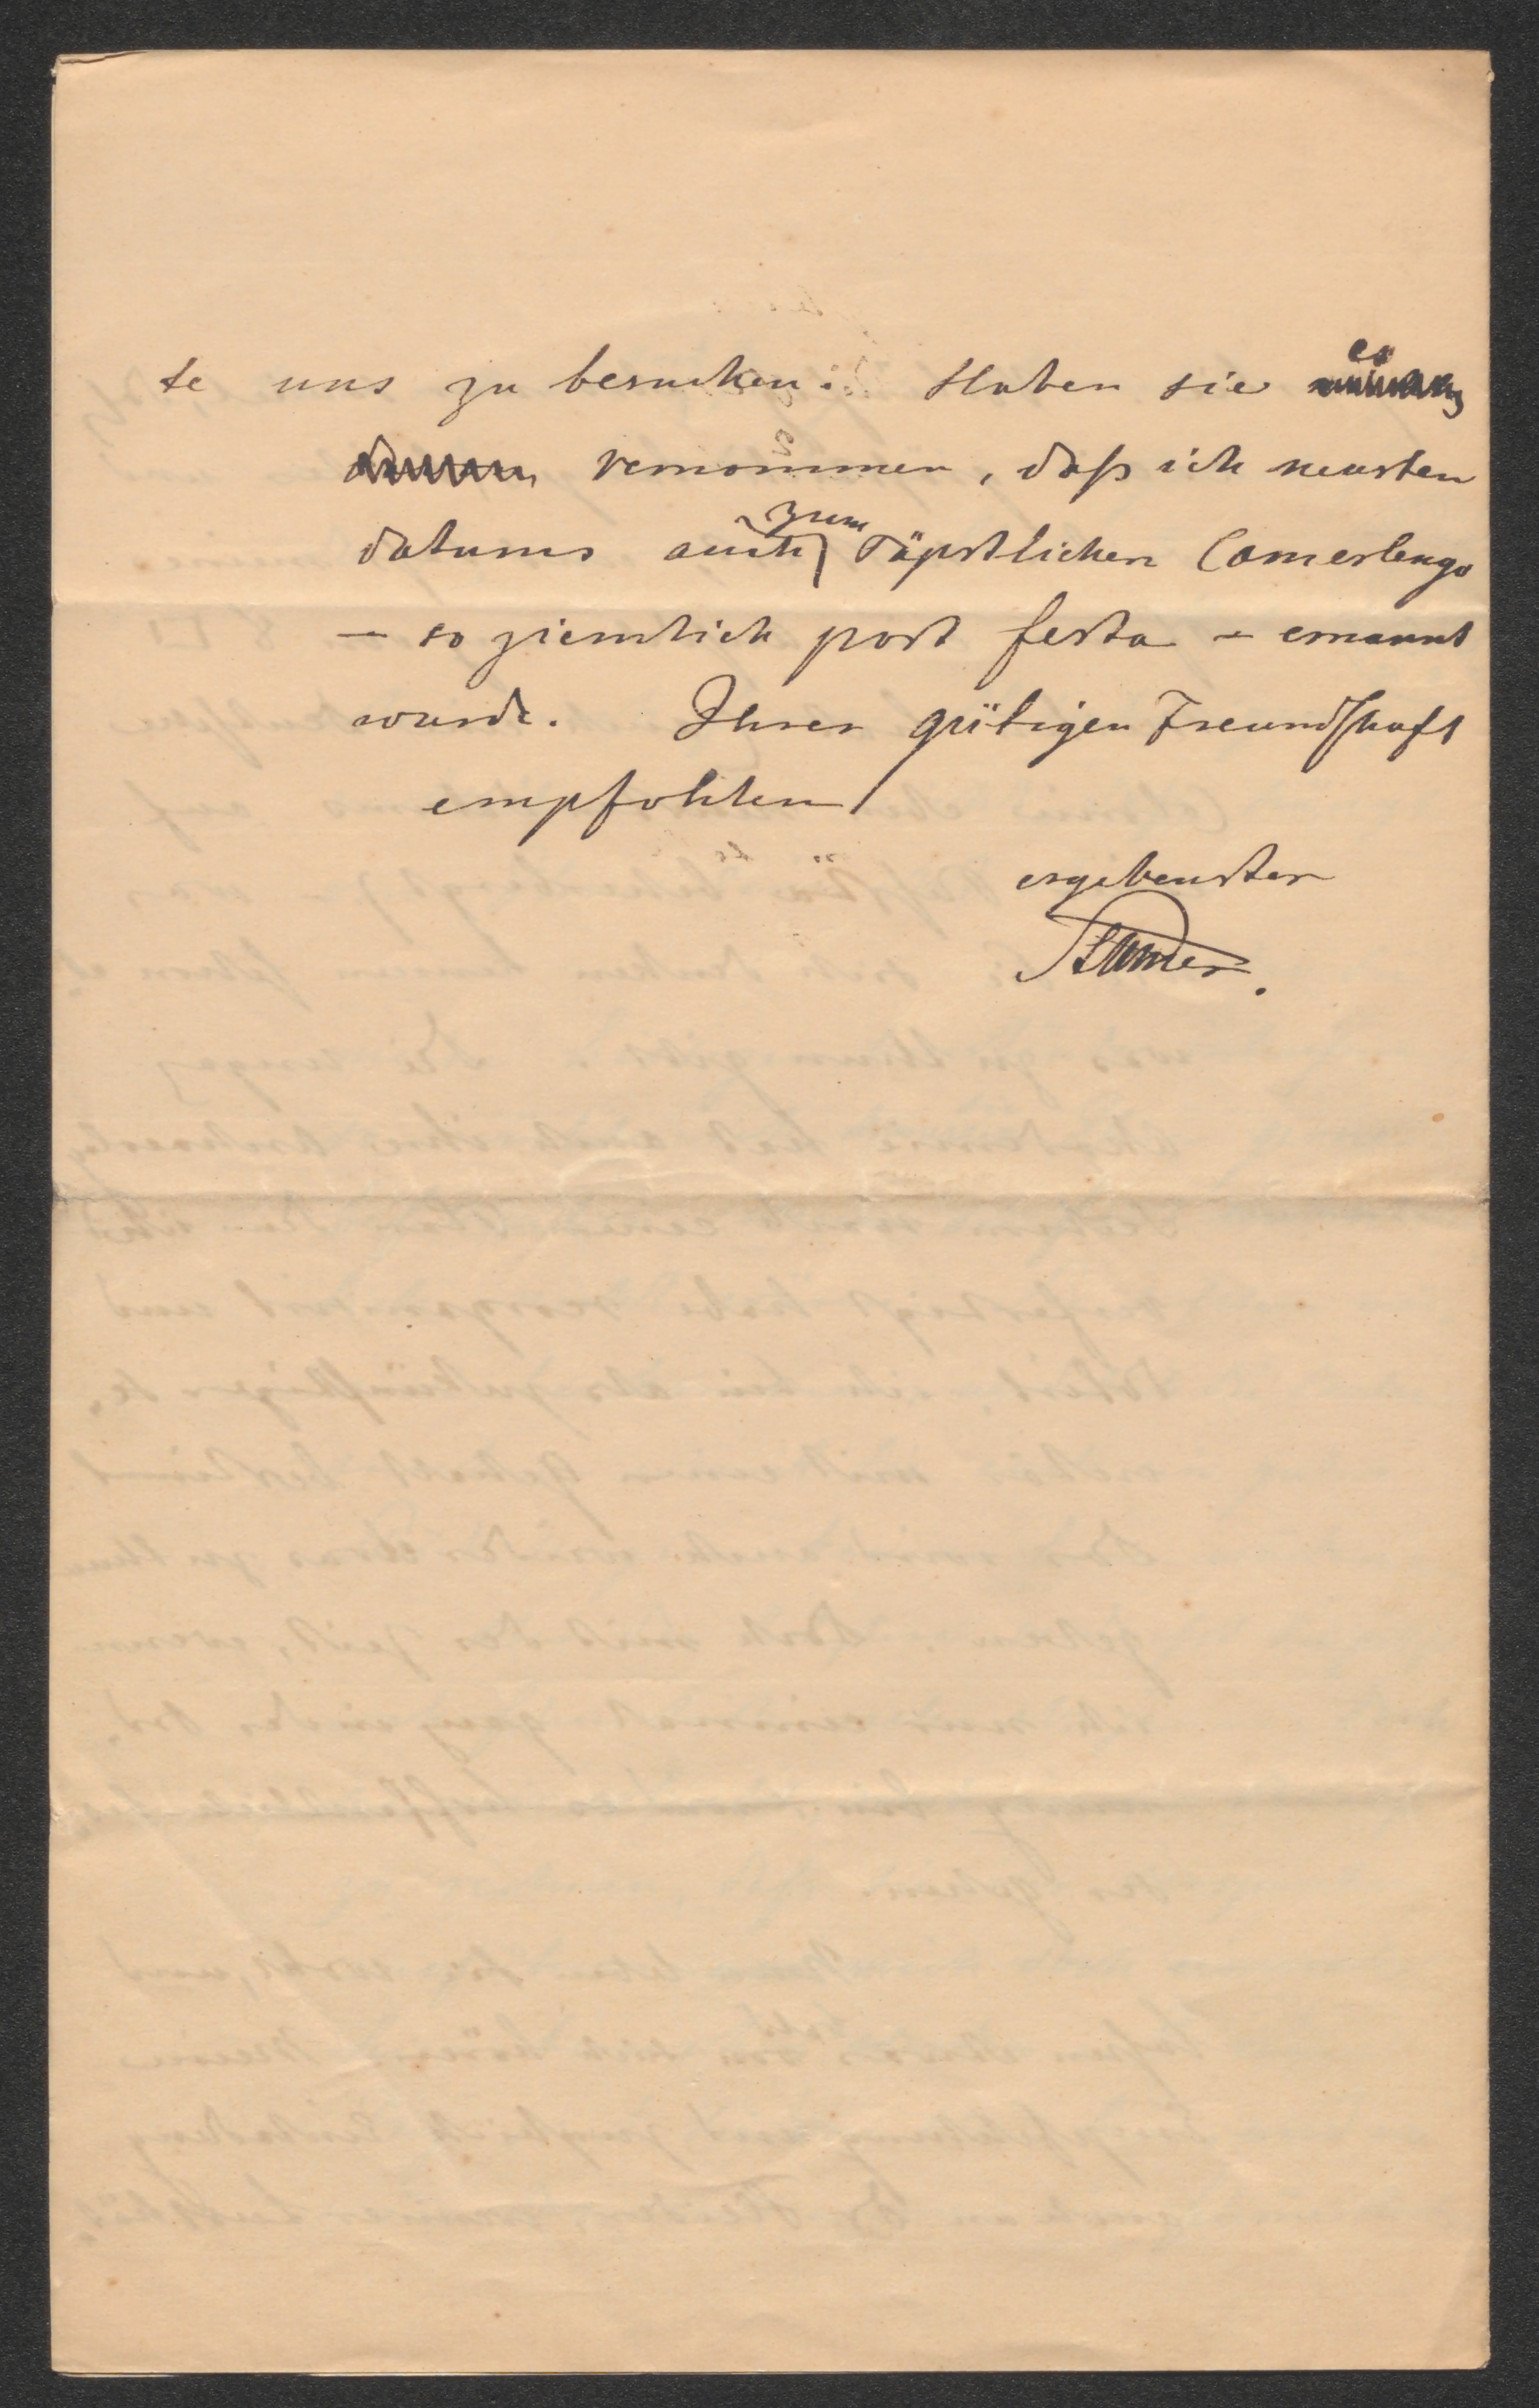 te uns zu besuchen. Haben sie es
vernommen, daß ich neusten
datums auch zum Päpstlichen Camerlengo
– so ziemlich post festa – ernannt
wurde. Ihrer gütigen Freundschaft
empfohlen
ergebenster